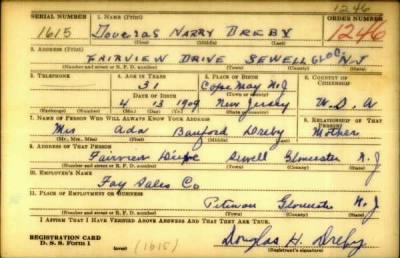 1246
SERIAL NUMBER 1. NAME (Print) ORDER NUMBER
1615 Douglas Harry Dreby 1246
(First) (Middle) (Last)
2. ADDRESS (Print)
FAIRVIEW DRIVE SEWELL GLOC. N.J
(Number and street or R. F. D. number) (Town) (County) (State)
3. TELEPHONE 4. AGE IN YEARS 5. PLACE OF BIRTH 6. COUNTRY OF CITIZENSHIP
31 Cape May N.J
DATE OF BIRTH (Town or county)
4 13 1909 New Jersey U.S.A
(Exchange) (Number) (Mo.) (Day) (Yr.) (State or country)
7. NAME OF PERSON WHO WILL ALWAYS KNOW YOUR ADDRESS 8. RELATIONSHIP OF THAT PERSON
Mrs Ada Dreby Mother
(Mr., Mrs., Miss) (First) (Middle) (Last)
9. ADDRESS OF THAT PERSON
Fairview Drive Sewell Gloucester N.J
(Number and street or R. F. D. number) (Town) (County) (State)
10. EMPLOYER'S NAME
Fay Sales Co
11. PLACE OF EMPLOYMENT OR BUSINESS
Pitman Gloucester N.J
(Number and street or R. F. D. number) (Town) (County) (State)
I AFFIRM THAT I HAVE VERIFIED ABOVE ANSWERS AND THAT THEY ARE TRUE.
REGISTRATION CARD
D. S. S. Form 1 (over) (1615) Douglas H. Dreby
(Registrant's signature)